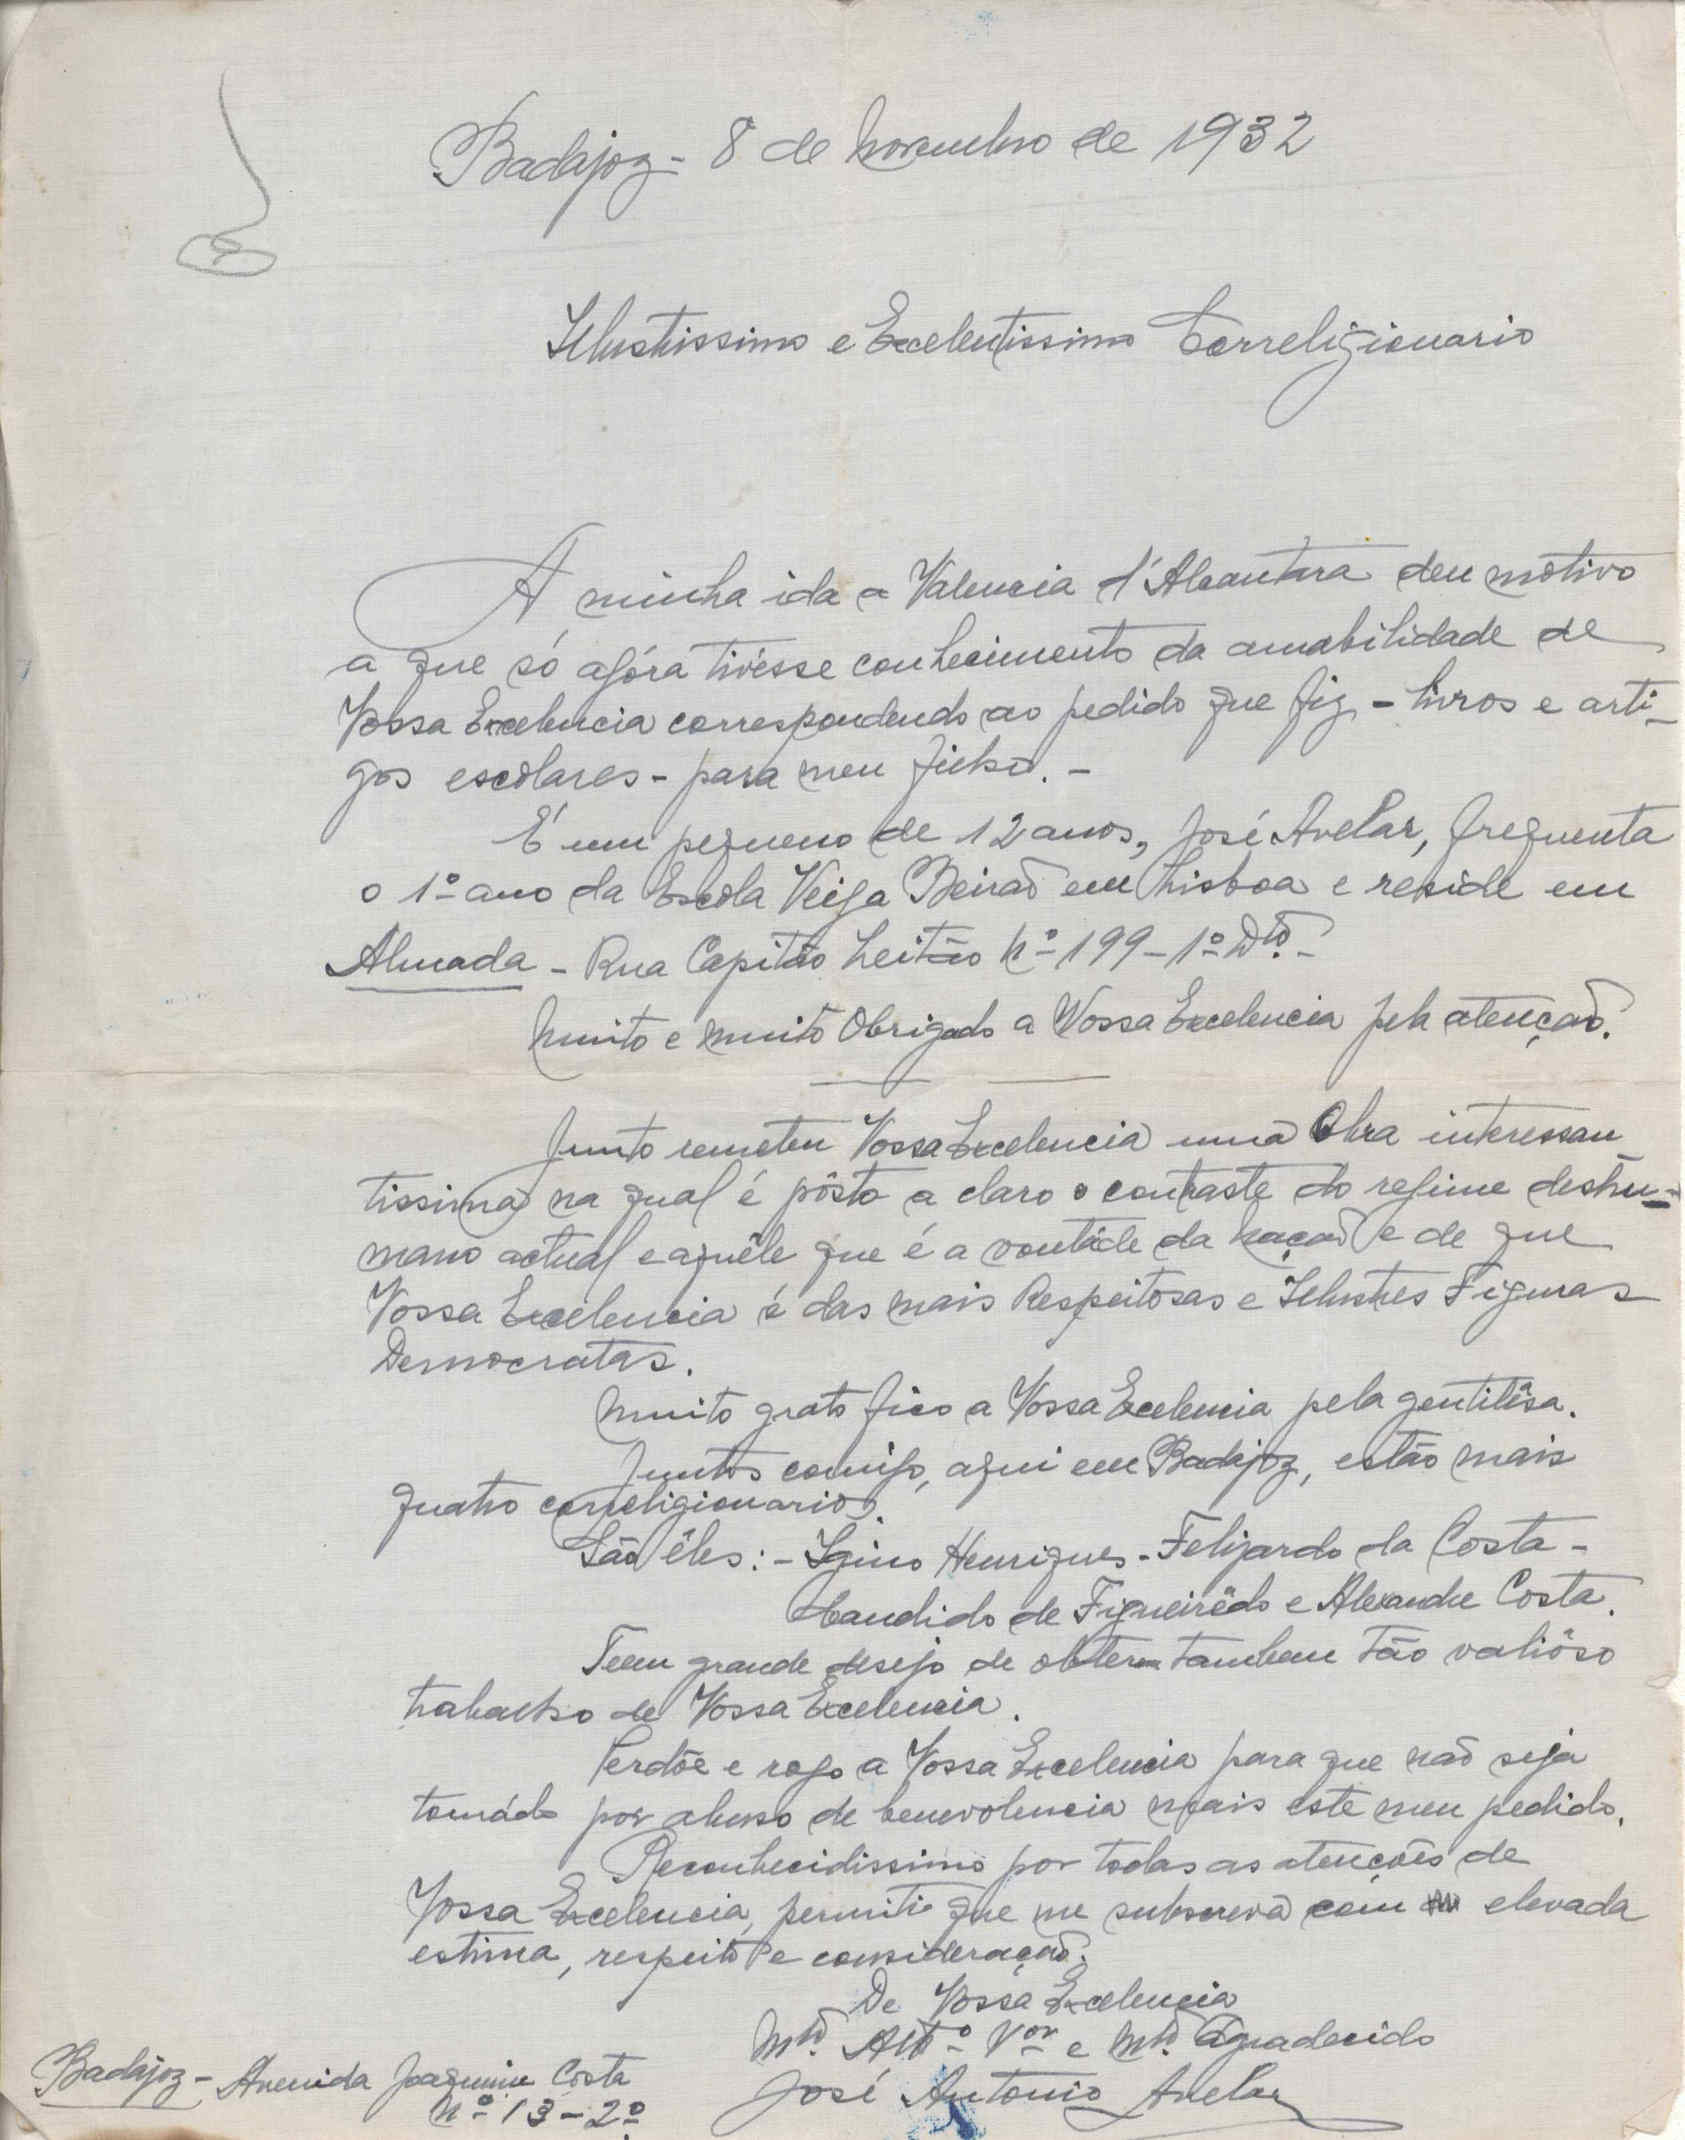 Badajoz - 8 de Novembro de 1932
Ilustrissimo e Excelentissimo Correligionario
A minha ida a Valencia d'Alcantara deu motivo
a que só agóra tivésse conhecimento da amabilidade de
Vossa Excelencia correspondendo ao pedido que fiz - livros e arti-
gos escolares - para meu filho. -
É um pequeno de 12 anos, José Avelar, frequenta
o 1º ano da Escola Veiga Beirão em Lisboa e reside em
Almada - Rua Capitão Leitão Nº 199 - 1º Dtº. -
Muito e muito Obrigado a Vossa Excelencia pela atenção.
Junto remeteu Vossa Excelencia uma Obra interessan
tissima na qual é pôsto a claro o contraste do regime deshu-
mano actual e aquêle que é a vontáde da Nação e de que
Vossa Excelencia é das mais Respeitosas e Ilustres Figuras
Democratas.
Muito grato fico a Vossa Excelencia pela gentilêsa.
Juntos comigo, aqui em Badajoz, estão mais
quatro correligionarios.
São êles: - Igino Henriques - Felizardo da Costa -
Candido de Figueirêdo e Alexandre Costa.
Teem grande desejo de obterem tambem tão valiôso
trabalho de Vossa Excelencia.
Perdõe e rogo a Vossa Excelencia para que não seja
tomádo por abuso de benevolencia mais este meu pedido.
Reconhecidissimo por todas as atenções de
Vossa Excelencia, permiti que me subscreva com elevada
estima, respeito e consideração.
De Vossa Excelencia
Mtº. Attº Vor e Mtº. Agradecido
José Antonio Avelar
Badajoz - Avenida Joaquim Costa
Nº 13 - 2º